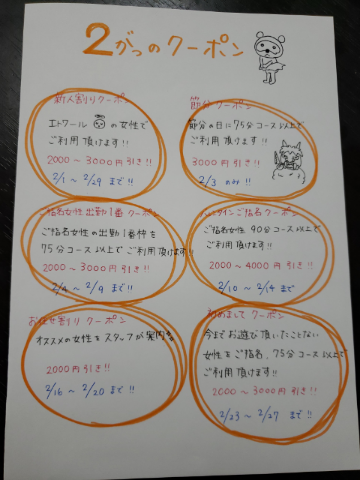 2がつのクーポン
新人割りクーポン
エトワール の女性で
ご利用頂けます!!
2000〜3000円引き!!
2/1 〜 2/29 まで!!
節分クーポン
節分の日に75分コース以上で
ご利用頂けます!!
3000円引き!!
2/3 のみ!!
ご指名女性出勤1番クーポン
ご指名女性の出勤1番枠を
75分コース以上でご利用頂けます!!
2000〜3000円引き!!
2/4 〜 2/9 まで!!
バレンタインご指名クーポン
ご指名女性 90分コース以上で
ご利用頂けます!!
2000〜4000円引き!!
2/10 〜 2/14 まで
お任せ割りクーポン
オススメの女性をスタッフが案内
2000円引き!!
2/16 〜 2/20 まで!!
初めましてクーポン
今までお遊び頂いたことない
女性をご指名、75分コース以上で
ご利用頂けます!!
2000〜3000円引き!!
2/23 〜 2/27 まで!!